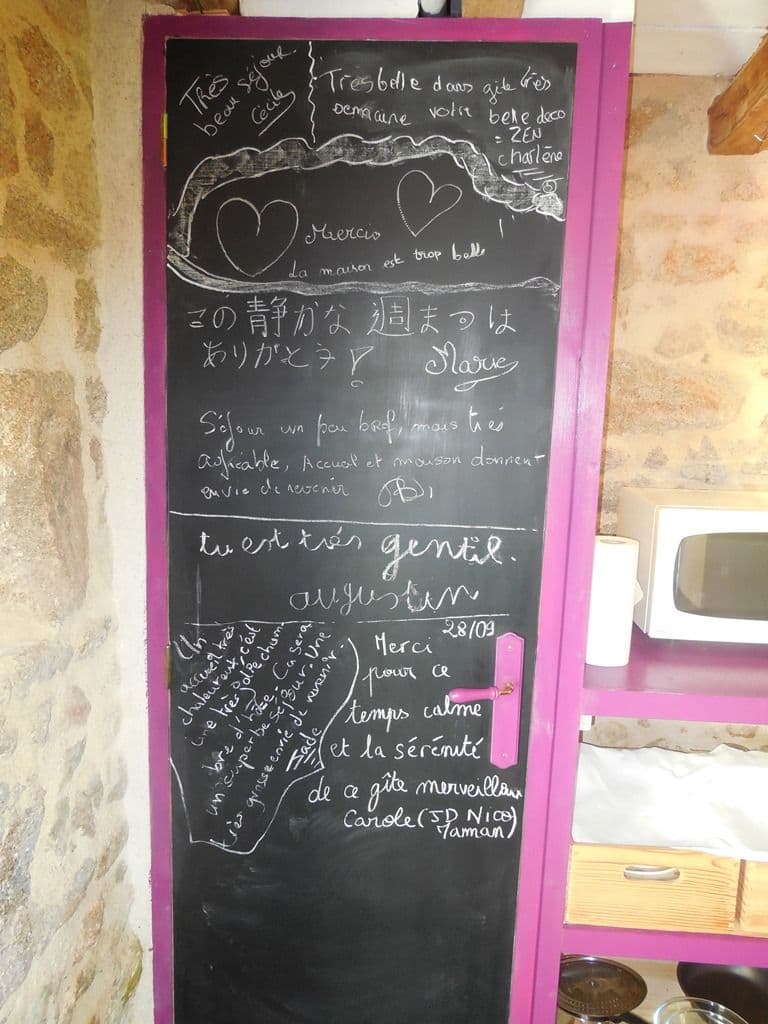 Très
beau séjour.
Cécile
Très belle dans gîte très
semaine votre belle deco
= ZEN
charlène
Mercio
La maison est trop belle
この静かな週まつは
ありがとう!
Marie
Séjour un peu bref, mais très
agréable, Accueil et maison donnent
envie de revenir
tu est très gentil.
augustin
28/09
Un
accueil très
chaleureux, c'est
une très jolie cham
bre d'hôte. Ca sera
un super be séjour. Une
très grosse envie de revenir.
Jade
Merci
pour ce
temps calme
et la sérénité
de ce gîte merveilleux
Carole (JD Nico
Maman)